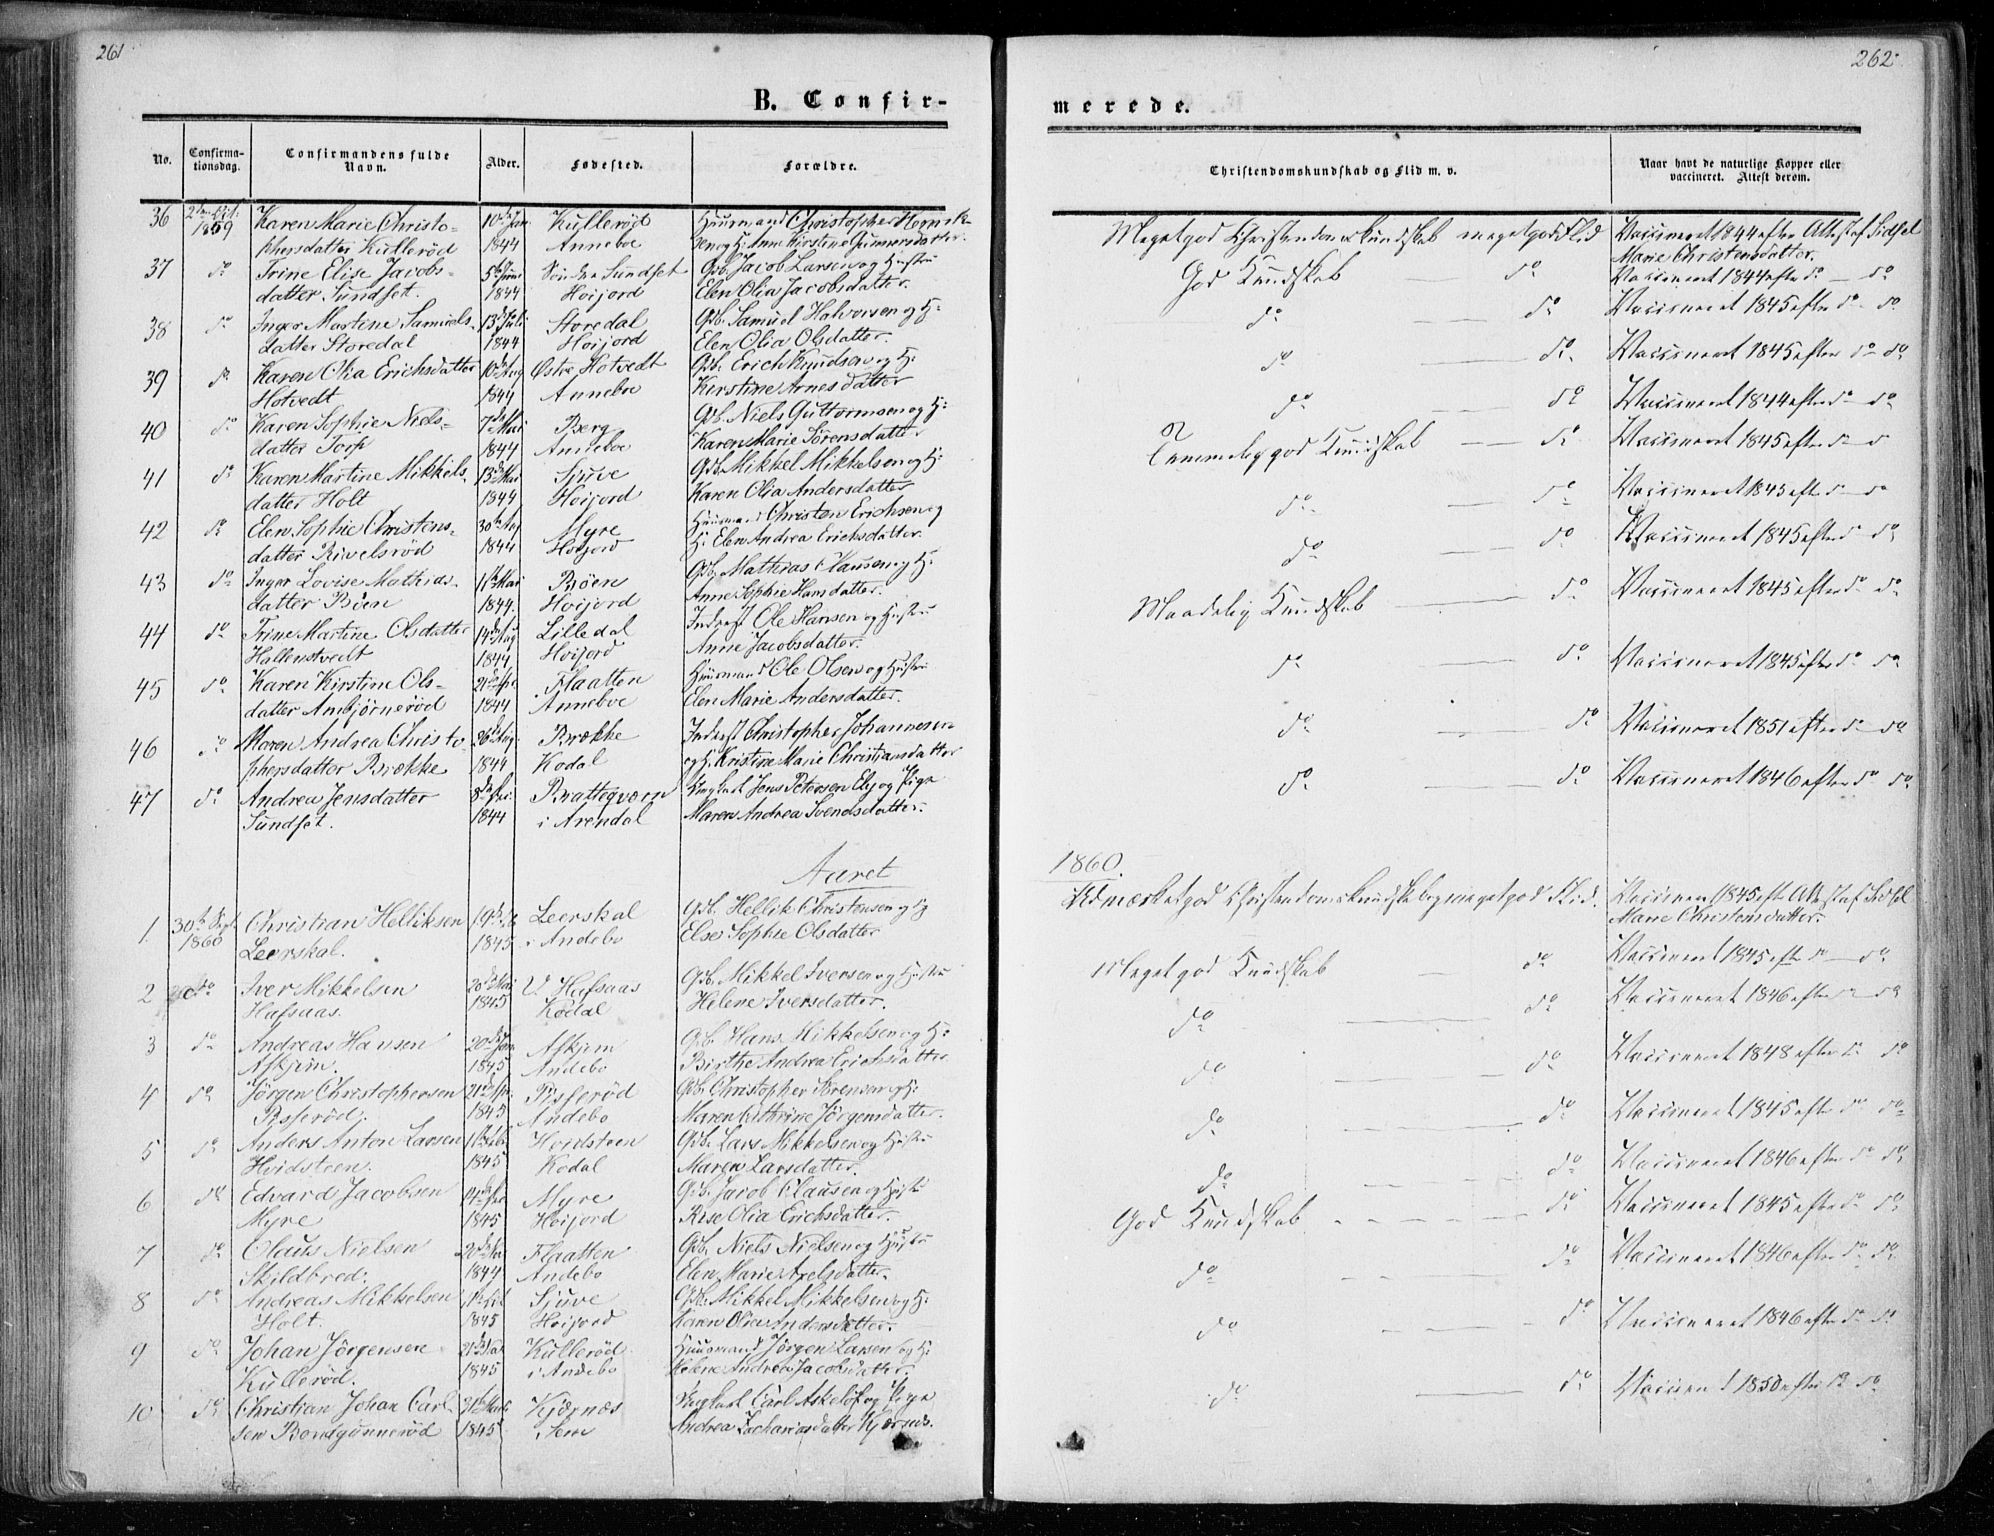 261
262
B. Confir-
merede.
No.
Confirma-
tionsdag.
Confirmandens fulde
Navn.
Alder.
Fødested.
Forældre.
Christendomskundskab og Flid m. v.
Naar havt de naturlige Kopper eller
vaccineret. Attest derom.
36 1859 Karen Marie Christo- 10de Jan Kullerød Huusmand Christopher Henrik-
phersdatter Kullerød 1844 Anneboe sen og H: Anne Kirstine Gunnersdatter.
Megetgod Christendomskundskab megetgod Flid Vaccineret 1844 efter Attest af Sidsel
Marie Christensdatter.
37 do Trine Elise Jacobs- 5te Juni Sundset Gdb. Jacob Larsen og Hustru
datter Sundset. 1844 Hoijord Elen Olia Jacobsdatter.
God Kundskab do Vaccineret 1844 efter do do
38 do Inger Martine Samuels- 13de Juli Storedal Gdb. Samuel Halvorsen og H:
datter Storedal 1844 Hoijord Elen Olia Olsdatter.
do do Vaccineret 1845 efter do do
39 do Karen Olia Erichsdatter 10de Aug Østre Hotvedt Gdb. Erich Knudsen og H:
Hotvedt 1844 Anneboe Kirstine Arnesdatter
do do Vaccineret 1845 efter do do
40 do Karen Sophie Niels- 7de Mai Berg Gdb. Niels Guttormsen og H:
datter Torp 1844 Anneboe Karen Marie Sörensdatter
do do Vaccineret 1844 efter do do
41 do Karen Martine Mikkels- 13de Mai Sjuve Gdb. Mikkel Mikkelsen og H:
datter Holt 1844 Hoijord Karen Olia Andersdatter
Temmelig god Kundskab do Vaccineret 1845 efter do do
42 do Elen Sophie Christens- 30te Aug Myre Huusmand Christen Erichsen og
datter Rivelsrød 1844 Hoijord H: Elen Andrea Erichsdatter.
do do Vaccineret 1845 efter do do
43 do Inger Lovise Mathias- 11te Mai Böen Gdb. Mathias Clausen og H:
datter Böen 1844. Hoijord Anne Sophie Hansdatter.
do do Vaccineret 1845 efter do do
44 do Trine Martine Olsdatter 14de Aug Lilledal Inderst Ole Hansen og Hustru
Hallenstvedt 1844 Hoijord Anne Jacobsdatter.
Maadelig Kundskab do Vaccineret 1845 efter do do
45 do Karen Kirstine Ols- 21de Apr Flaatten Huusmand Ole Olsen og Hustru
datter Ambjørnerød 1844 Anneboe Elen Marie Andersdatter.
do do Vaccineret 1845 efter do do
46 do Maren Andrea Christo- 26de Aug Brække Inderst Christopher Johannesen
phersdatter Brække 1844 Kodal og H: Kristine Marie Christiansdatter
do do Vaccineret 1851 efter do do
47 do Andrea Jensdatter Brattegværn Ungkarl Jens Petersen Ely og Pige
Sundset. 1844 i Arendal Maren Andrea Svendsdatter.
do do Vaccineret 1846 efter do do
Aaret
1860.
1 30te Sept Christian Helliksen 19de Leerskal Gdb. Hellik Christensen og H
1860 Leerskal. 1845 i Andebo Else Sophie Olsdatter
Udmærketgod Christendomskundskab og megetgod Flid. Vaccineret 1845 eft. Attest af Sidsel
Marie Christensdatter.
2 do Iver Mikkelsen 20de Mai V. Hafsaas Gdb. Mikkel Iversen og Hustru
Hafsaas. 1845 Kodal Helene Iversdatter.
Megetgod Kundskab do Vaccineret 1845 eft do do
3 do Andreas Hansen 20de Jan Askjem Gdb. Hans Mikkelsen og H:
Askjem. 1845 Andebo Birthe Andrea Erichsdatter
do do Vaccineret 1846 efter do do
4 do Jörgen Christophersen 21de Apr. Bjserød Gdb. Christopher Sörensen og H:
Bjserød. 1845 Andebo Maren Cathrine Jörgensdatter.
do do Vaccineret 1848 efter do do
5 do Anders Anton Larsen 11te Febr Hvidsteen Gdb. Lars Mikkelsen og Hustru
Hvidsteen. 1845 Kodal Maren Larsdatter.
do do Vaccineret 1845 efter do do
6 do Edvard Jacobsen Myre Gdb. Jacob Clausen og Hustru
Myre 1845 Hoijord Rise Olia Erichsdatter.
do do Vaccineret 1846 efter do do
7 do Olaus Nielsen Flaatten Gdb. Niels Nielsen og Hustru
Skildbred. 1844 Andebo Elen Marie Axelsdatter.
God Kundskab do Vaccineret 1845 efter do do
8 do Andreas Mikkelsen Sjuve Gdb. Mikkel Mikkelsen og H:
Holt. 1845 Hoijord Karen Olia Andersdatter.
do do Vaccineret 1846 efter do do
9 do Johan Jörgensen Kullerød Huusmand Jörgen Larsen og H:
Kullerød. 1845 i Andebo Helene Andrea Jacobsdatter.
do do Vaccineret 1846 efter do do
10 do Christian Johan Carl- Kjærnæs Ungkarl Carl Askelöf og Pige
sen Bondgunnerød 1845 Sem Andrea Zachariasdatter Kjærnæs.
do do Vaccineret 1850 efter do do